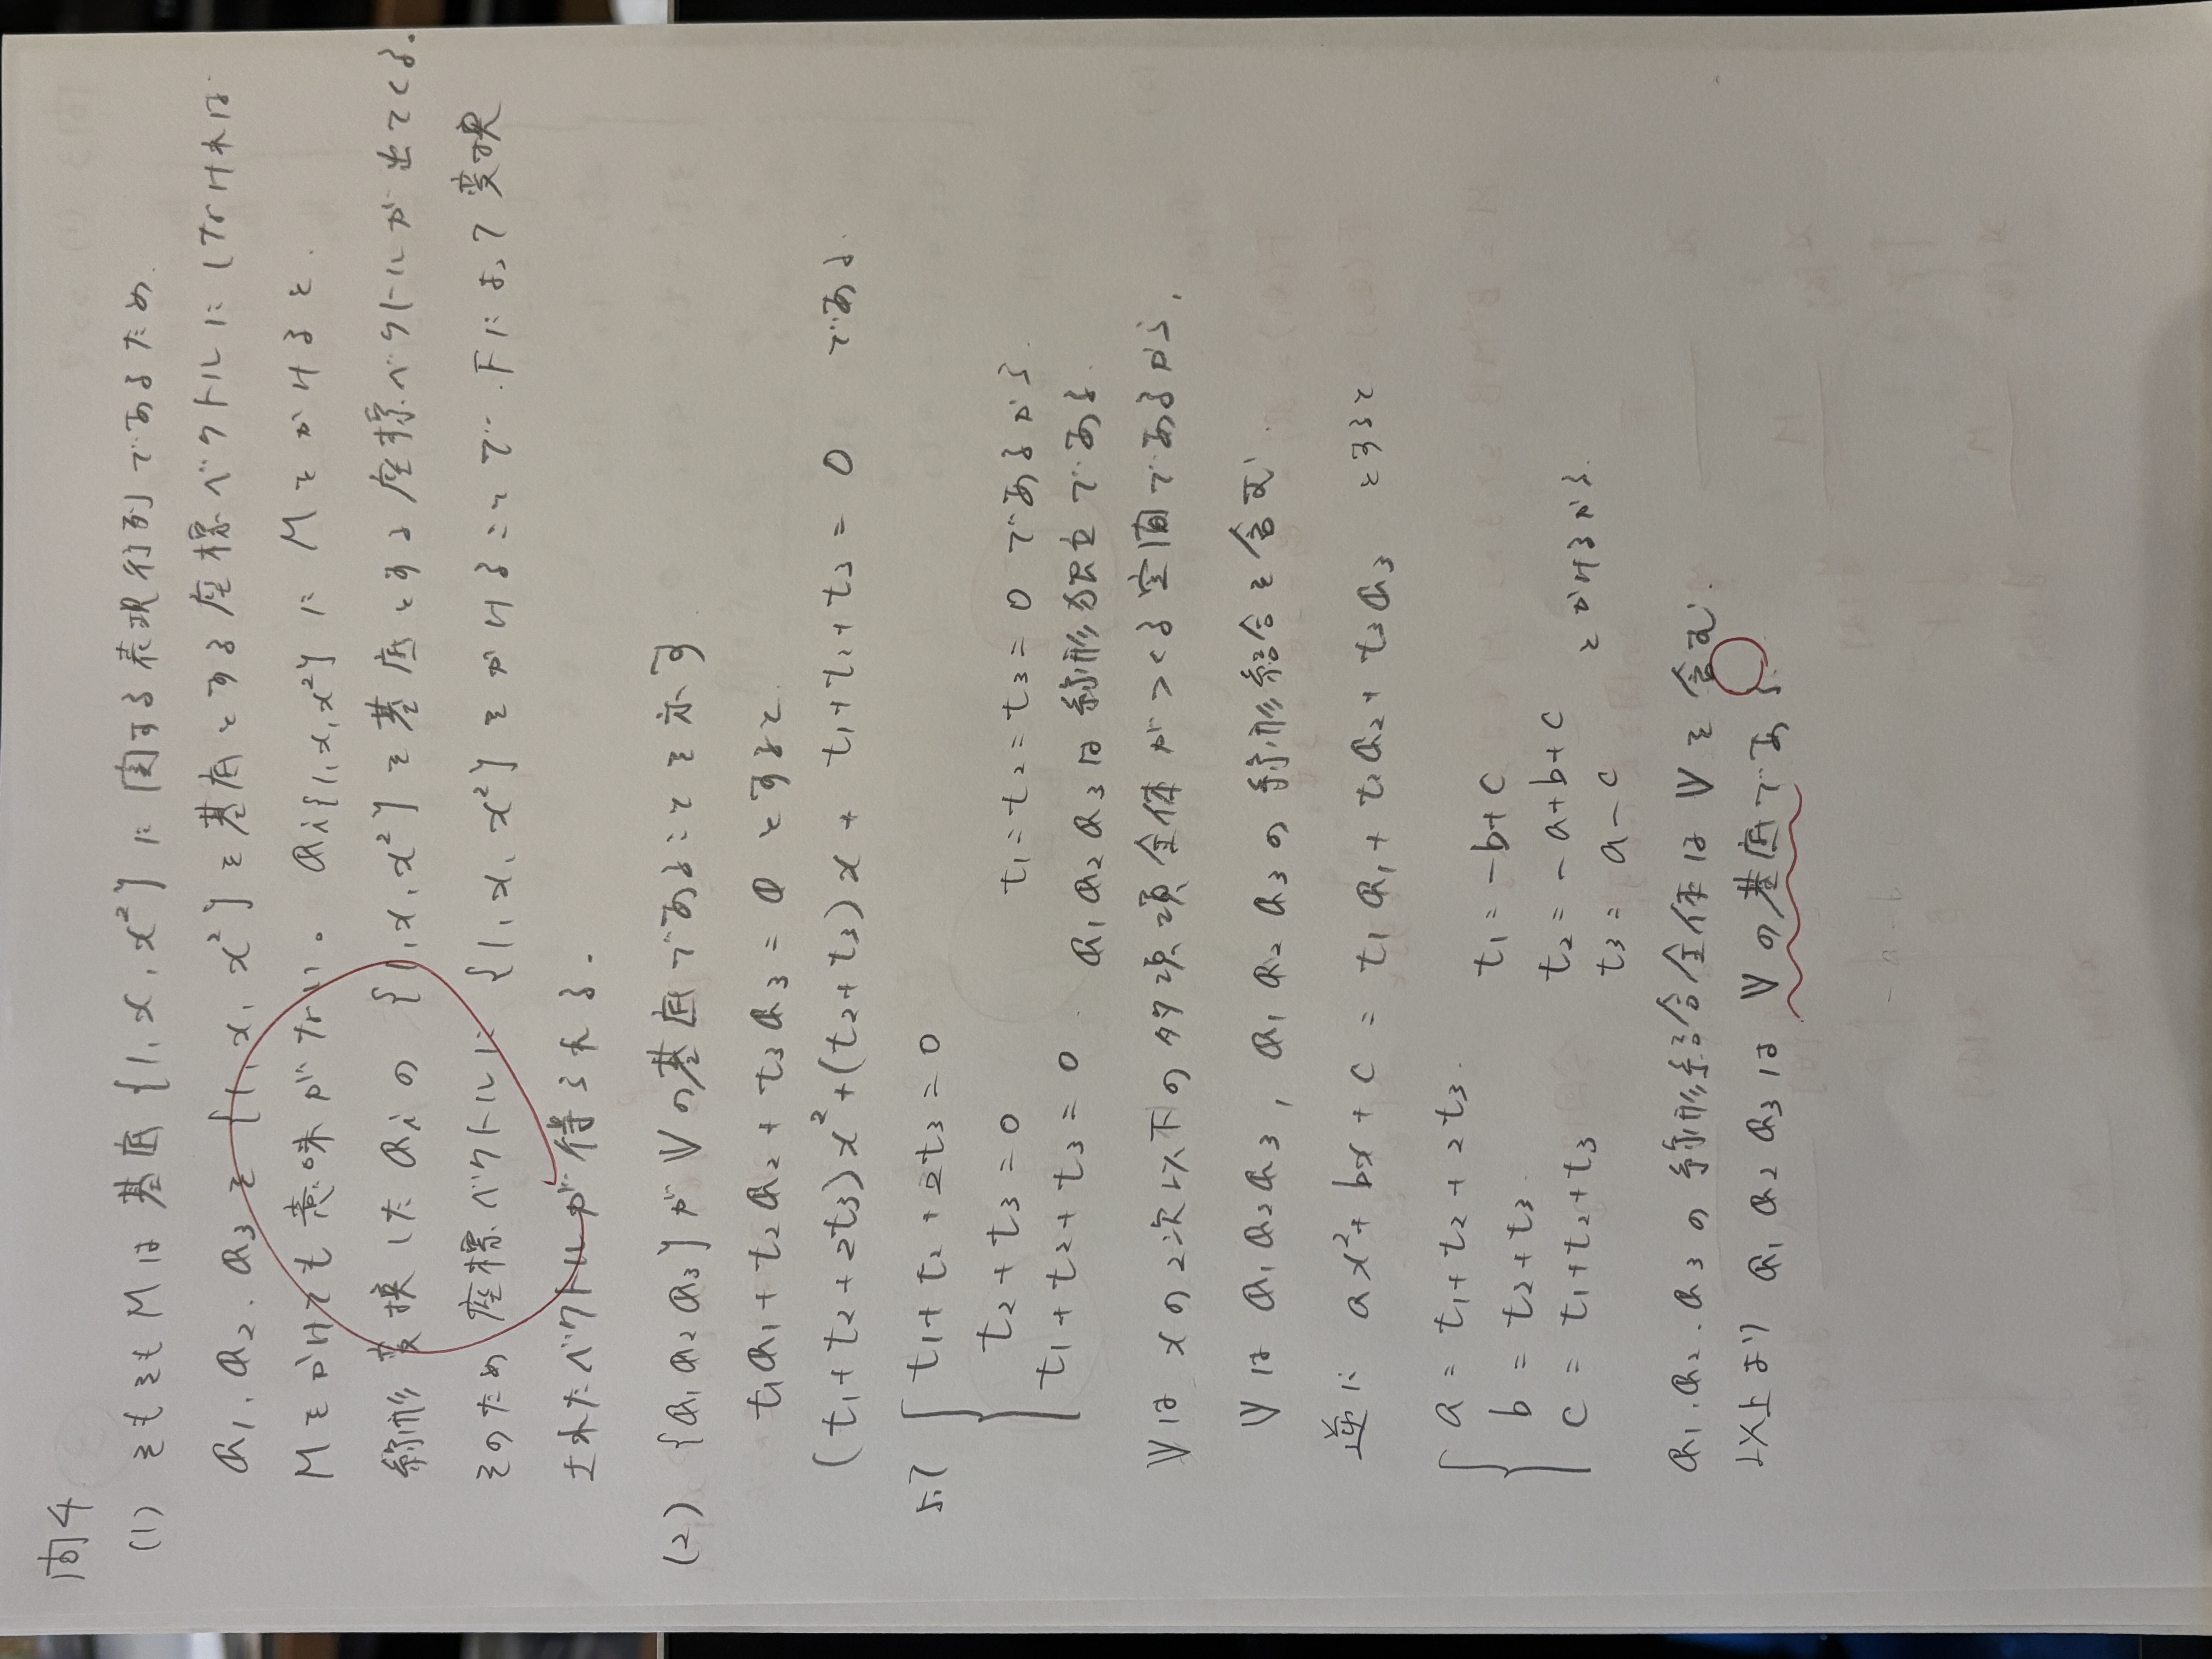 問4
(1) そもそも M は 基底 {1, x, x²} に 関する 表現行列 であるため
a₁, a₂, a₃ を {1, x, x²} を 基底とする 座標ベクトルに しなければ
M をかけても 意味がない。 aᵢ{1, x, x²} に M をかけると、
線形変換した aᵢ の {1, x, x²} を 基底とする 座標ベクトルが 出てくる。
そのため 座標ベクトルに {1, x, x²} をかけることで、Fによって 変換
されたベクトルが 得られる。
(2) {a₁ a₂ a₃} が V の基底であることを示す
t₁a₁ + t₂a₂ + t₃a₃ = 0 とすると、
(t₁ + t₂ + 2t₃)x² + (t₂ + t₃)x + t₁ + t₂ + t₃ = 0 である.
よって { t₁ + t₂ + 2t₃ = 0
t₂ + t₃ = 0
t₁ + t₂ + t₃ = 0
t₁ = t₂ = t₃ = 0 であるから.
a₁ a₂ a₃ は 線形独立である.
V は x の 2次以下の 多項項 全体がつくる 空間であるから,
V は a₁ a₂ a₃, a₁ a₂ a₃ の 線形結合を含む.
逆に ax² + bx + c = t₁a₁ + t₂a₂ + t₃a₃ とすると
{ a = t₁ + t₂ + 2t₃
b = t₂ + t₃
c = t₁ + t₂ + t₃
t₁ = -b + c
t₂ = -a + b + c
t₃ = a - c
とかけるから.
a₁, a₂, a₃ の 線形結合全体は V を 含む.
以上より a₁ a₂ a₃ は V の 基底である.